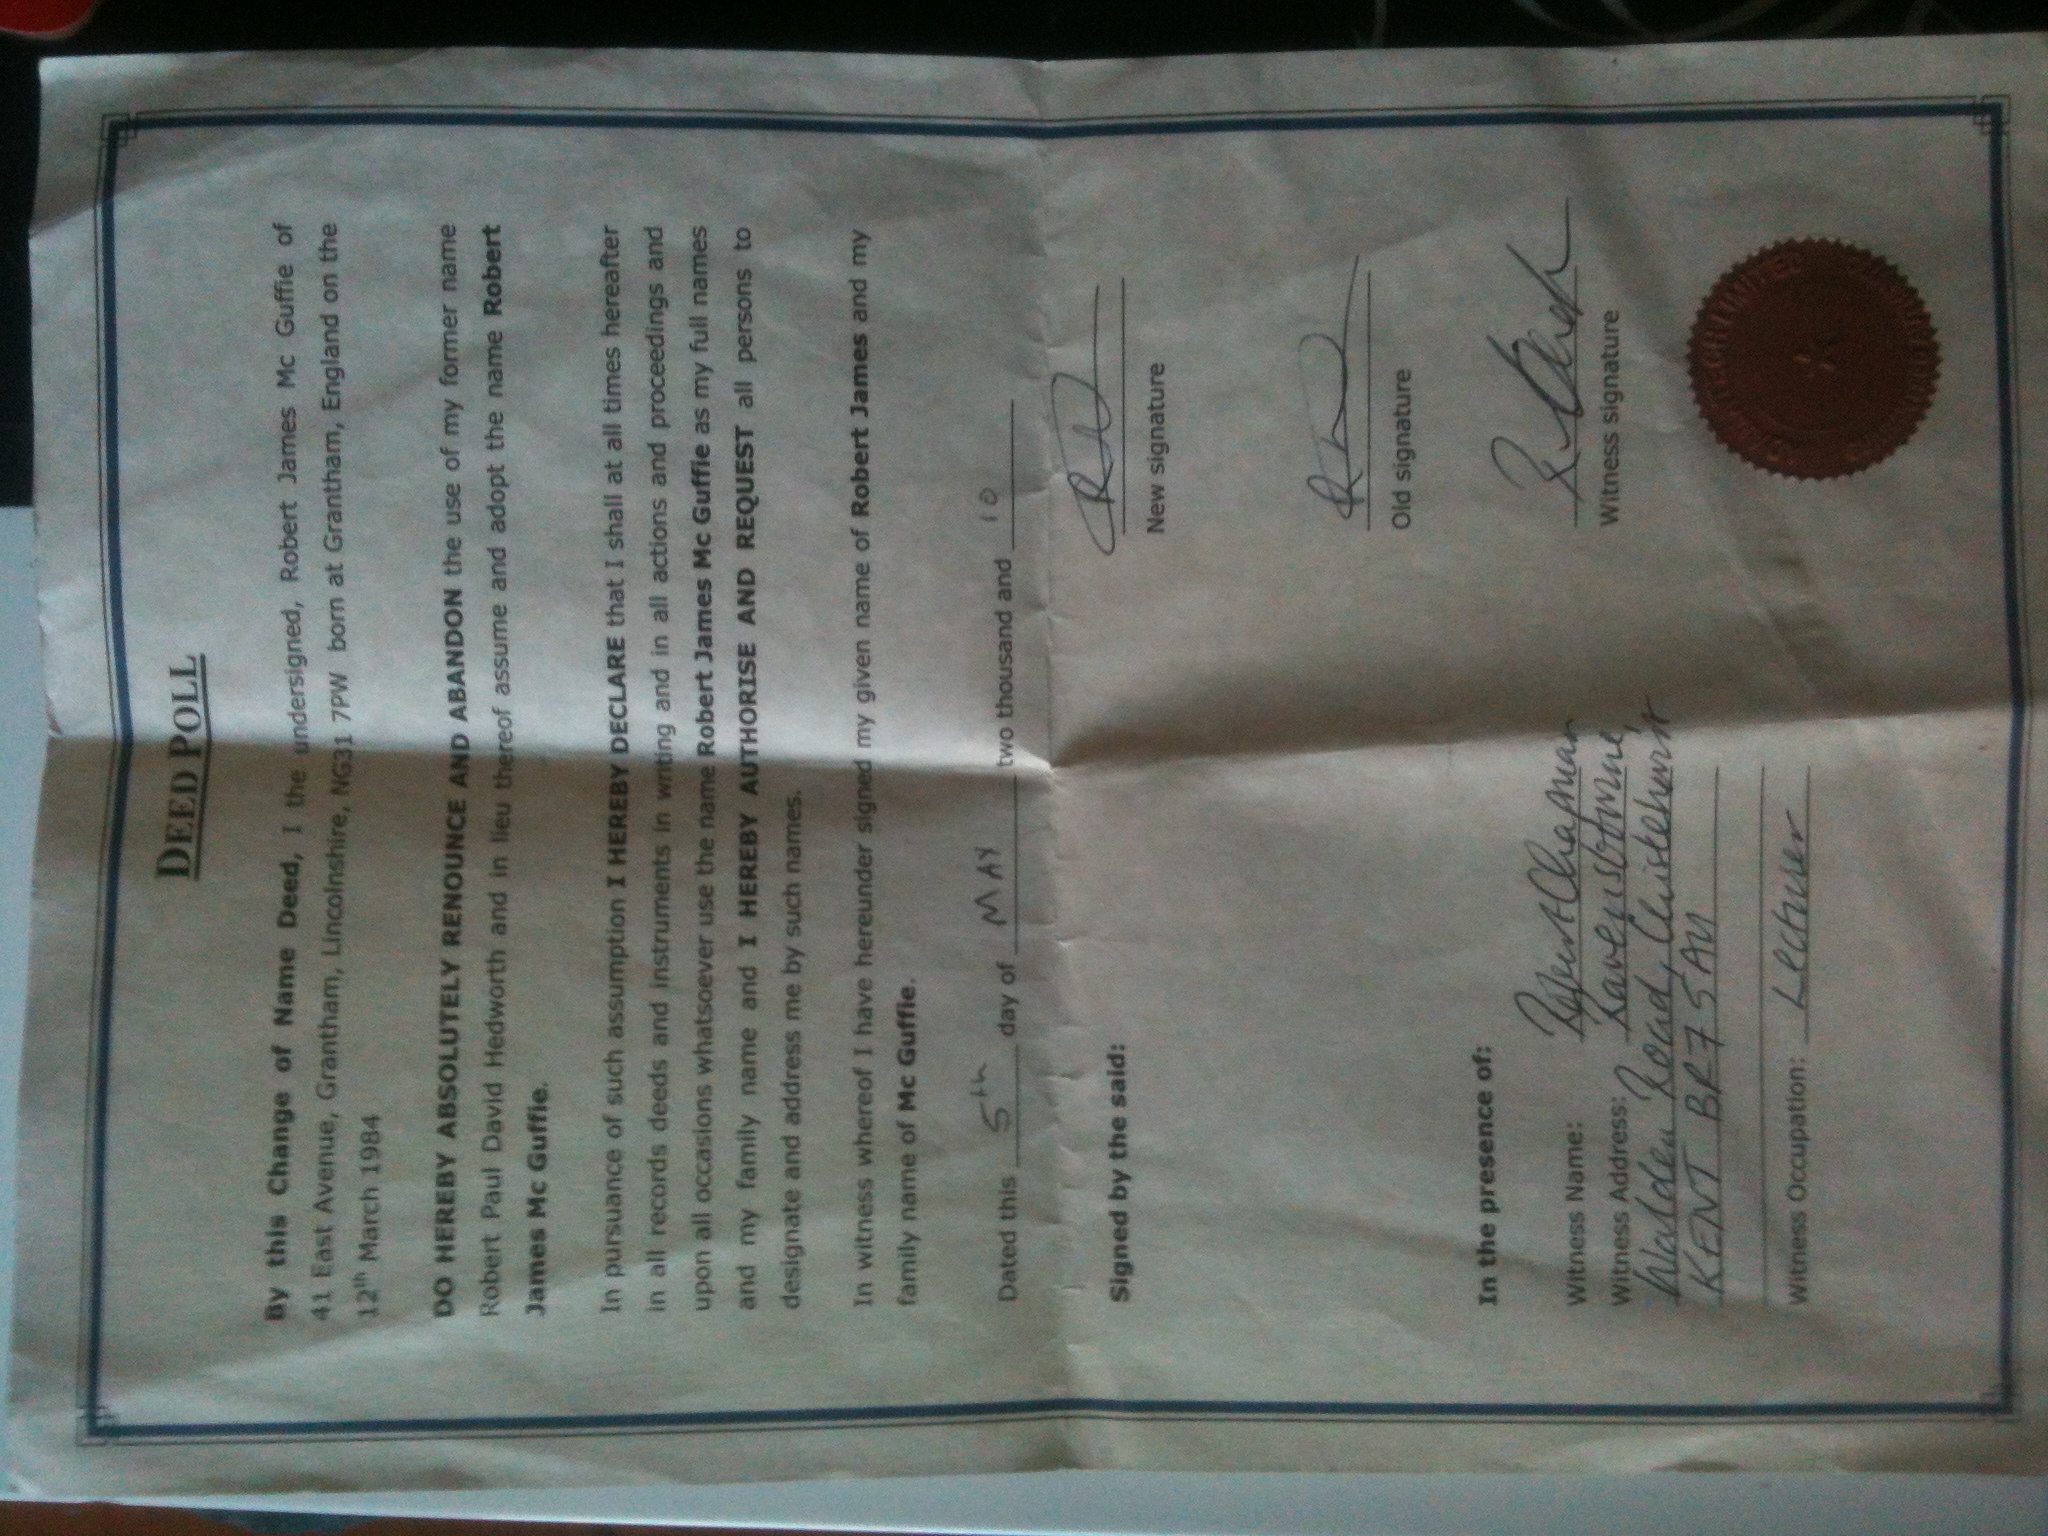 DEED POLL
By this Change of Name Deed, I the undersigned, Robert James Mc Guffie of
41 East Avenue, Grantham, Lincolnshire, NG31 7PW born at Grantham, England on the
12th March 1984
DO HEREBY ABSOLUTELY RENOUNCE AND ABANDON the use of my former name
Robert Paul David Hedworth and in lieu thereof assume and adopt the name Robert
James Mc Guffie.
In pursuance of such assumption I HEREBY DECLARE that I shall at all times hereafter
in all records deeds and instruments in writing and in all actions and proceedings and
upon all occasions whatsoever use the name Robert James Mc Guffie as my full names
and my family name and I HEREBY AUTHORISE AND REQUEST all persons to
designate and address me by such names.
In witness whereof I have hereunder signed my given name of Robert James and my
family name of Mc Guffie.
Dated this 5th day of MAY two thousand and 10
Signed by the said:
New signature
Old signature
In the presence of:
Witness Name: Chapman
Witness Address: Ravensbourne,
Walden Road, Chislehurst
KENT BR7 5AN
Witness signature
Witness Occupation: Lecturer